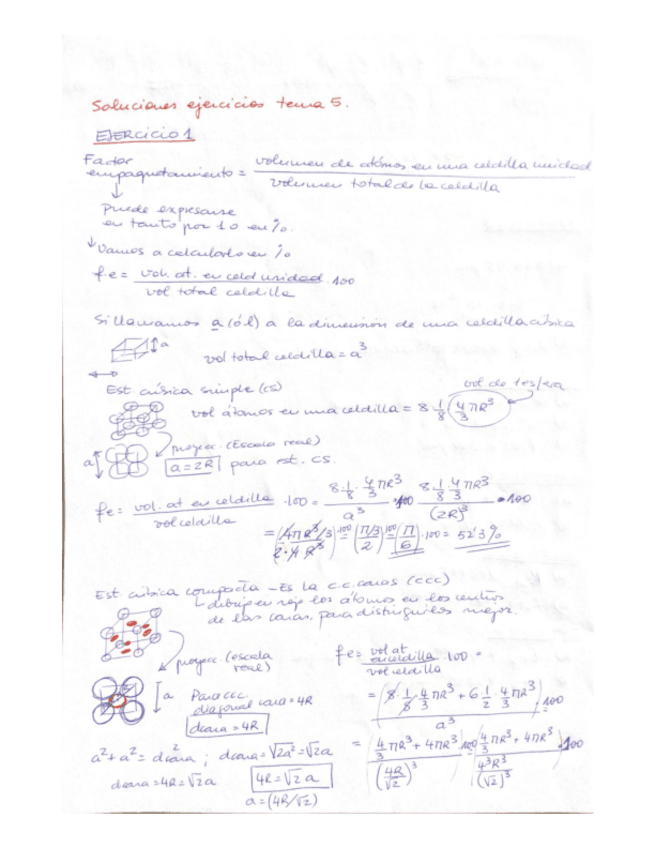 Soluciones ejercicios tema 5.
EJERCICIO 1
Factor empaquetamiento = volumen de átomos en una celdilla unidad / volumen total de la celdilla
↓
Puede expresarse
en tanto por 1 o en %.
↓ Vamos a calcularlo en %
fe = vol. at. en celd unidad / vol total celdilla · 100
Si llamamos a (ó l) a la dimensión de una celdilla cúbica
a
vol total celdilla = a³
Est. cúbica simple (cs)
vol de 1 esfera
vol átomos en una celdilla = 8·1/8·(4/3 πR³)
proyec. (Escala real)
a
a = 2R para est. cs.
fe = vol. at en celdilla / vol celdilla · 100 = 8·1/8·4/3 πR³ / a³ · 100 = 8·1/8·4/3 πR³ / (2R)³ · 100
= (4πR³/3 / 2·4R³)·100 = (π/3 / 2)·100 = (π/6)·100 = 52'3%
Est cúbica compacta - Es la c.c. caras (ccc)
dibujo en rojo los átomos en los centros
de las caras, para distinguirlos mejor.
proyec. (escala
real)
fe = vol at en celdilla / vol celdilla · 100 =
a
Para ccc.
diagonal cara = 4R
dcara = 4R
= (8·1/8·4/3 πR³ + 6·1/2·4/3 πR³ / a³)·100 =
a² + a² = d²cara ; dcara = √2a² = √2a
= (4/3 πR³ + 4πR³ / (4R/√2)³)·100 = (4/3 πR³ + 4πR³ / 4³R³/(√2)³)·100
dcara = 4R = √2 a
4R = √2 a
a = (4R/√2)